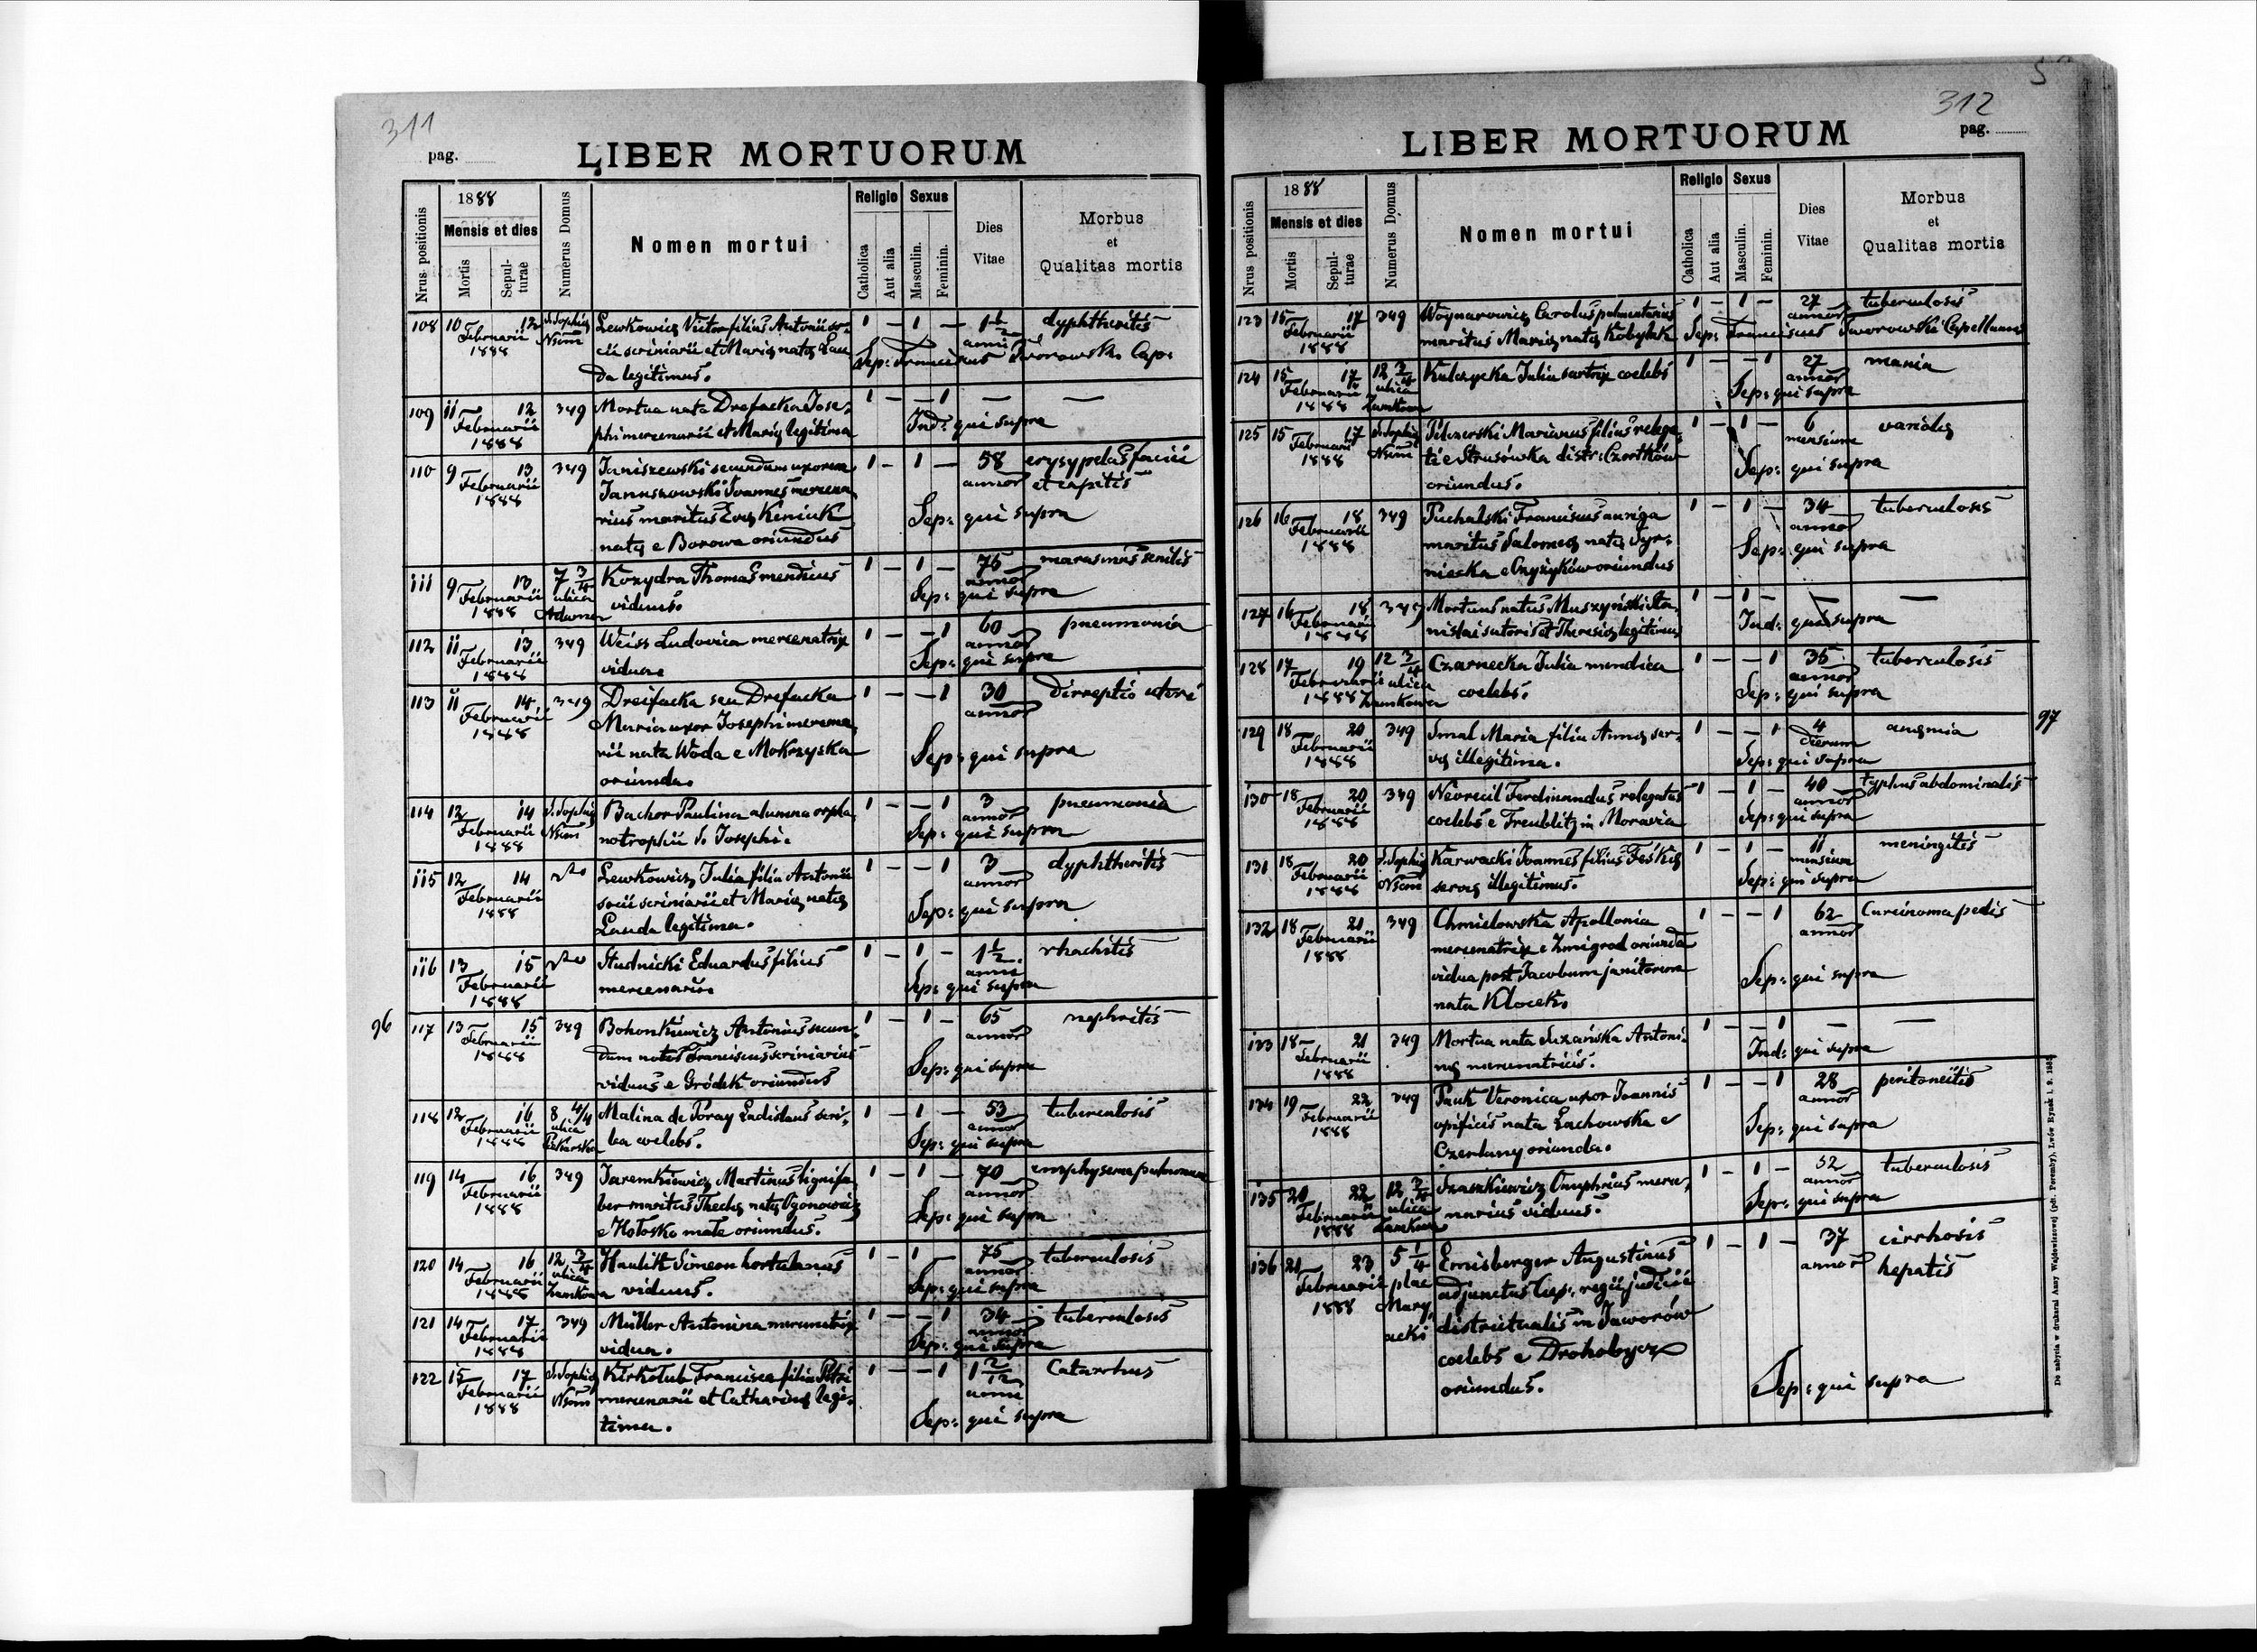 311
pag.
LIBER MORTUORUM
Nrus positionis
1888
Mensis et dies
Mortis
Sepulturae
Numerus Domus
Nomen mortui
Religio
Catholica
Aut alia
Sexus
Masculin.
Feminin.
Dies Vitae
Morbus
et
Qualitas mortis
108 10 12 Februarii 1888 S. Sophię
Lewkowicz Victor filius Antonii so-
cii scriniarii et Marię natę Lau
da legitimus.
1 - 1 - 1½ anni dyphtheritis
Sep: Franciscus Sworowski Cap:
109 11 12 Februarii 1888 349
Mortua nata Drefacka Jose-
phi mercenarii et Marię legitima
1 - - 1 — —
Ind: qui supra
110 9 13 Februarii 1888 349
Janiszewski secundum uxorem
Januszowski Joannes mercena
rius maritus Evę Keniuk
natę e Borowa oriundus
1 - 1 - 58 annor erysypelas facii
et capitis
Sep: qui supra
111 9 13 Februarii 1888 7 3/4 ulica
Kozydra Thomas mendicus
viduus.
1 - 1 - 75 annor marasmus senilis
Sep: qui supra
112 11 13 Februarii 1888 349
Weiss Ludovica mercenatrix
vidua
1 - - 1 60 annor pneumonia
Sep: qui supra
113 11 14 Februarii 1888 349
Dreifacka seu Drefacka
Maria uxor Josephi mercena
rii nata Woda e Mokrzyska
oriunda.
1 - - 1 30 annor dirreptio uteri
Sep: qui supra
114 12 14 Februarii 1888 S. Sophię
Bachor Paulina alumna orpha
notrophii S. Josephi.
1 - - 1 3 annor pneumonia
Sep: qui supra
115 12 14 Februarii 1888
Lewkowicz Julia filia Antonii
socii scriniarii et Marię natę
Lauda legitima.
1 - - 1 3 annor dyphtheritis
Sep: qui supra
116 13 15 Februarii 1888
Studnicki Eduardus filius
mercenarii
1 - 1 - 1½ anni rhachitis
Sep: qui supra
96
117 13 15 Februarii 1888 349
Bohonkiewicz Antonius secun-
dum notos Franciscus scriniarius
viduus e Gródek oriundus
1 - 1 - 65 annor nephritis
Sep: qui supra
118 12 16 Februarii 1888 8 4/4 ulica Piekarska
Malina de Poray Ladislaus scri-
ba coelebs.
1 - 1 - 53 annor tuberculosis
Sep: qui supra
119 14 16 Februarii 1888 349
Jaremkiewicz Martinus lignifa
ber maritus Theclę natę Ogonowicz
e Hołosko małe oriundus.
1 - 1 - 70 annor emphysema pulmonum
Sep: qui supra
120 14 16 Februarii 1888 12 3/4 ulica Zamkowa
Haulik Simeon hortulanus
viduus.
1 - 1 - 75 annor tuberculosis
Sep: qui supra
121 14 17 Februarii 1888 349
Müller Antonina mercenatrix
vidua.
1 - - 1 34 annor tuberculosis
Sep: qui supra
122 15 17 Februarii 1888 S. Sophię
Kirkołub Francisca filia Petri
mercenarii et Catharinę legi-
tima.
1 - - 1 1 2/12 anni Catarrhus
Sep: qui supra
312
pag.
LIBER MORTUORUM
Nrus positionis
1888
Mensis et dies
Mortis
Sepulturae
Numerus Domus
Nomen mortui
Religio
Catholica
Aut alia
Sexus
Masculin.
Feminin.
Dies Vitae
Morbus
et
Qualitas mortis
123 15 17 Februarii 1888 349
Woynarowicz Carolus palmentarius
maritus Marię natę Kobylak
1 - 1 - 27 annor tuberculosis
Sep: Franciscus Sworowski Capellanus
124 15 17 Februarii 1888 12 3/4 ulica Zamkowa
Kulczycka Julia sartrix coelebs
1 - - 1 27 annor mania
Sep: qui supra
125 15 17 Februarii 1888 S. Sophię
Pelczerski Marianus filius relega-
ti e Strusówka distr: Czortków
oriundus.
1 - 1 - 6 mensium variolę
Sep: qui supra
126 16 18 Februarii 1888 349
Puchalski Franciscus auriga
maritus Salomeę natę Syr-
niecka e Czyżyków oriundus
1 - 1 - 34 annor tuberculosis
Sep: qui supra
127 16 18 Februarii 1888 349
Mortuus natus Muszyński Sta-
nislai sutoris et Theresię legitimus
1 - 1 - — —
Ind: qui supra
128 17 19 Februarii 1888 12 3/4 ulica Zamkowa
Czarnecka Julia mendica
coelebs.
1 - - 1 35 annor tuberculosis
Sep: qui supra
97
129 18 20 Februarii 1888 349
Smal Maria filia Annę ser-
vę illegitima.
1 - - 1 4 dierum anęmia
Sep: qui supra
130 18 20 Februarii 1888 349
Nevrcil Ferdinandus relegatus
coelebs e Treublitz in Moravia
1 - 1 - 40 annor typhus abdominalis
Sep: qui supra
131 18 20 Februarii 1888 S. Sophię
Karwacki Joannes filius Feśkę
servę illegitimus.
1 - 1 - 11 mensium meningitis
Sep: qui supra
132 18 21 Februarii 1888 349
Chmielowska Apollonia
mercenatrix e Zmigrod oriunda
vidua post Jacobum janitorem
nata Klocek.
1 - - 1 62 annor Carcinoma pedis
Sep: qui supra
133 18 21 Februarii 1888 349
Mortua nata Suzańska Antoni-
nę mercenatricis.
1 - - 1 — —
Ind: qui supra
134 19 22 Februarii 1888 349
Pauk Veronica uxor Joannis
opificis nata Lachowska e
Czerlany oriunda.
1 - - 1 28 annor peritoneitis
Sep: qui supra
135 20 22 Februarii 1888 12 3/4 ulica Zamkowa
Szaszkiewicz Onuphrius merce-
narius viduus.
1 - 1 - 52 annor tuberculosis
Sep: qui supra
136 21 23 Februarii 1888 5 1/4 plac Maryacki
Ernisberger Augustinus
adjunctus Cęs: regii judicii
districtualis in Jaworów
coelebs e Drohobycz
oriundus.
1 - 1 - 37 annor cirrhosis
hepatis
Sep: qui supra
Do nabycia w drukarni Anny Wajdowiczowej (pdt. Poremby), Lwów Rynek l. 9.